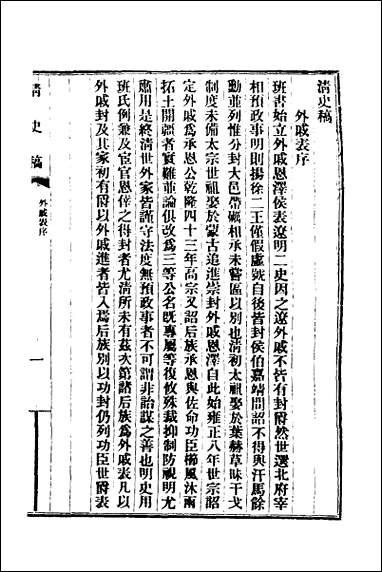 清史稿
外戚表序
班書始立外戚恩澤侯表遼明二史因之遼外戚不皆有封爵然世選北府宰
相預政事明則揚徐二王僅假虛號自後皆封侯伯嘉靖間詔不得與汗馬餘
勳並列惟分封大邑帶礪相承未嘗區以別也清初太祖娶於葉赫草昧干戈
制度未備太宗世祖娶於蒙古追進崇封外戚恩澤自此始雍正八年世宗詔
定外戚為承恩公乾隆四十三年高宗又詔后族承恩與佐命功臣櫛風沐雨
拓土開疆者實難並論俱改為三等公名既專屬等復攸殊裁抑制防視明尤
肅用是終清世外家皆謹守法度無預政事者不可謂非詒謀之善也明史用
班氏例兼及宦官恩倖之得封者尤清所未有茲次第諸后族為外戚表凡以
外戚封及其家初有爵以外戚進者皆入焉后族別以功封仍列功臣世爵表
清史稿
外戚表序
一